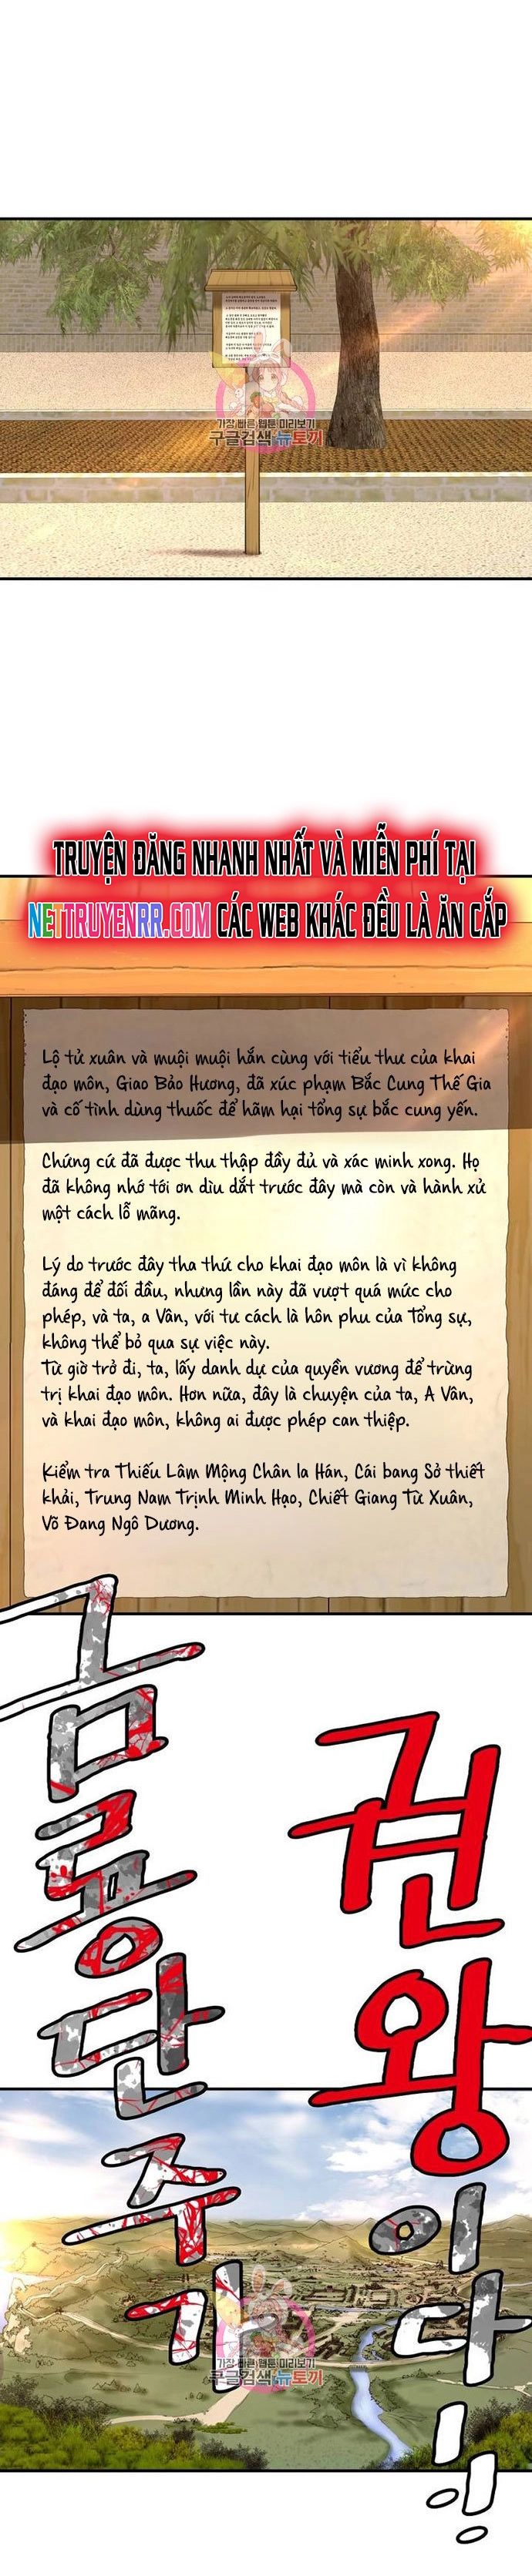 가장 빠른 웹툰 미리보기
구글검색 뉴토끼
TRUYỆN ĐĂNG NHANH NHẤT VÀ MIỄN PHÍ TẠI
NETTRUYENRR.COM CÁC WEB KHÁC ĐỀU LÀ ĂN CẮP
Lộ tử xuân và muội muội hắn cùng với tiểu thư của khai
đạo môn, Giao Bảo Hương, đã xúc phạm Bắc Cung Thế Gia
và cố tình dùng thuốc để hãm hại tổng sự bắc cung yến.
Chứng cứ đã được thu thập đầy đủ và xác minh xong. Họ
đã không nhớ tới ơn dìu dắt trước đây mà còn và hành xử
một cách lỗ mãng.
Lý do trước đây tha thứ cho khai đạo môn là vì không
đáng để đối đầu, nhưng lần này đã vượt quá mức cho
phép, và ta, a Vân, với tư cách là hôn phu của Tổng sự,
không thể bỏ qua sự việc này.
Từ giờ trở đi, ta, lấy danh dự của quyền vương để trừng
trị khai đạo môn. Hơn nữa, đây là chuyện của ta, A Vân,
và khai đạo môn, không ai được phép can thiệp.
Kiểm tra Thiếu Lâm Mộng Chân la Hán, Cái bang Sở thiết
khải, Trung Nam Trịnh Minh Hạo, Chiết Giang Từ Xuân,
Võ Đang Ngô Dương.
권왕이다!!
금룡단주가
가장 빠른 웹툰 미리보기
구글검색 뉴토끼